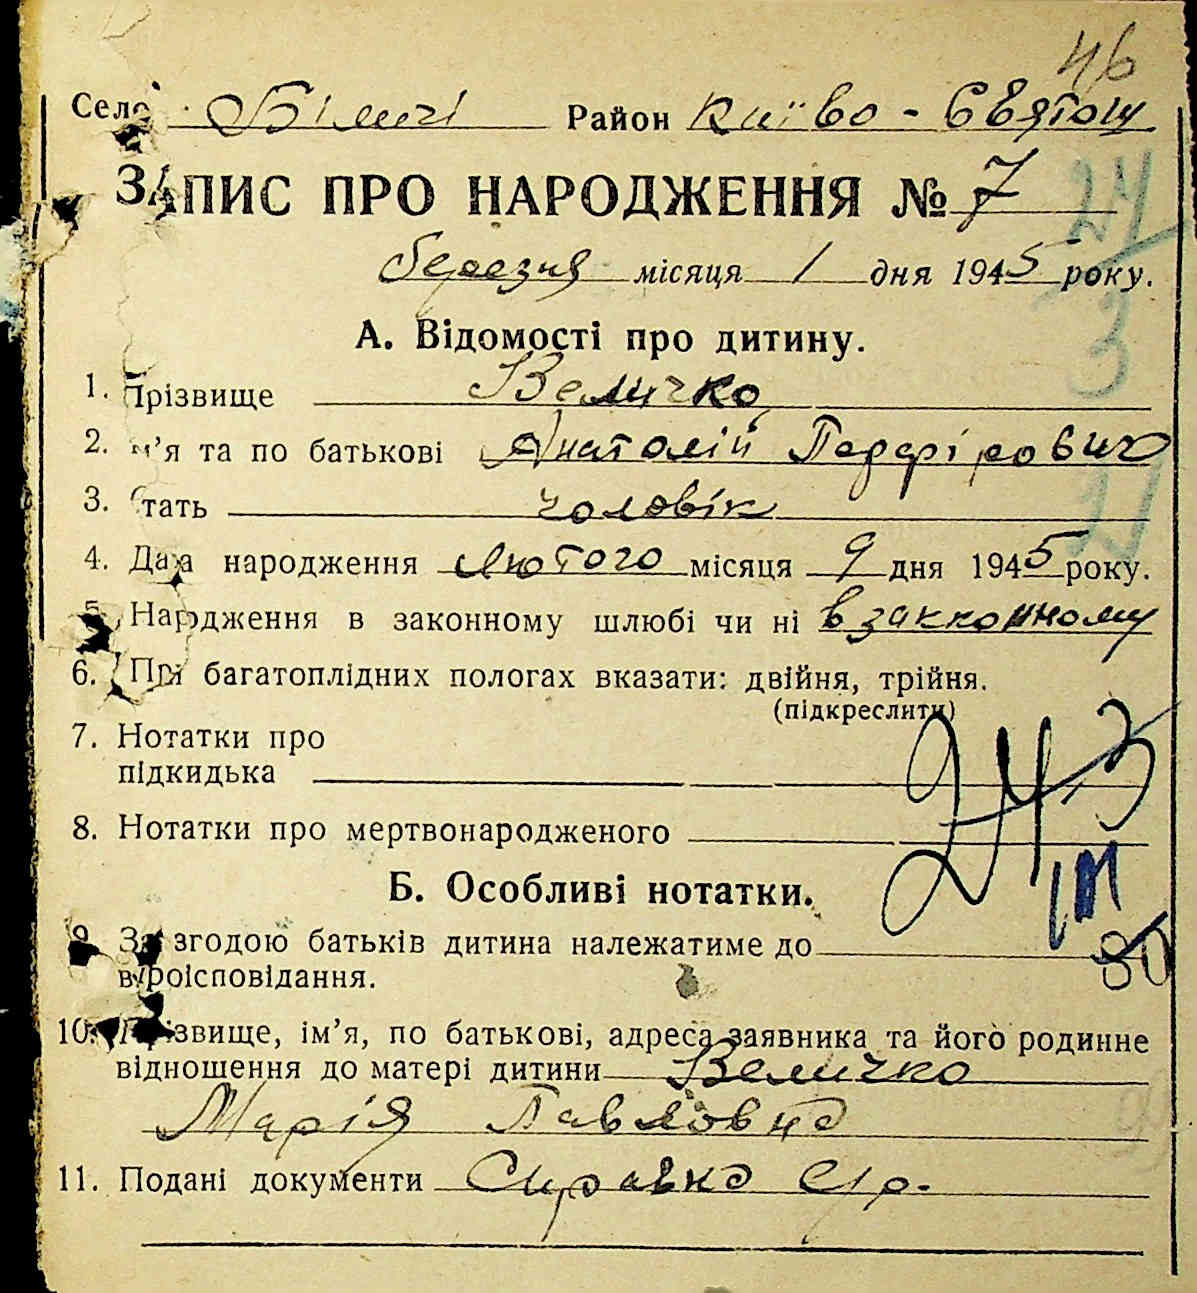 46
Село Біличі Район Київо-Святош
ЗАПИС ПРО НАРОДЖЕННЯ № 7
березня місяця 1 дня 1945 року.
А. Відомості про дитину.
1. Прізвище Величко
2. Ім’я та по батькові Анатолій Парфірович
3. Стать чоловік
4. Дата народження Лютого місяця 9 дня 1945 року.
5. Народження в законному шлюбі чи ні в закконному
6. При багатоплідних пологах вказати: двійня, трійня.
(підкреслити)
7. Нотатки про
підкидька
24,3
8. Нотатки про мертвонародженого
Б. Особливі нотатки.
9. За згодою батьків дитина належатиме до
віроісповідання.
80
10. Прізвище, ім’я, по батькові, адреса заявника та його родинне
відношення до матері дитини Величко
Марія Павловна
11. Подані документи Справка